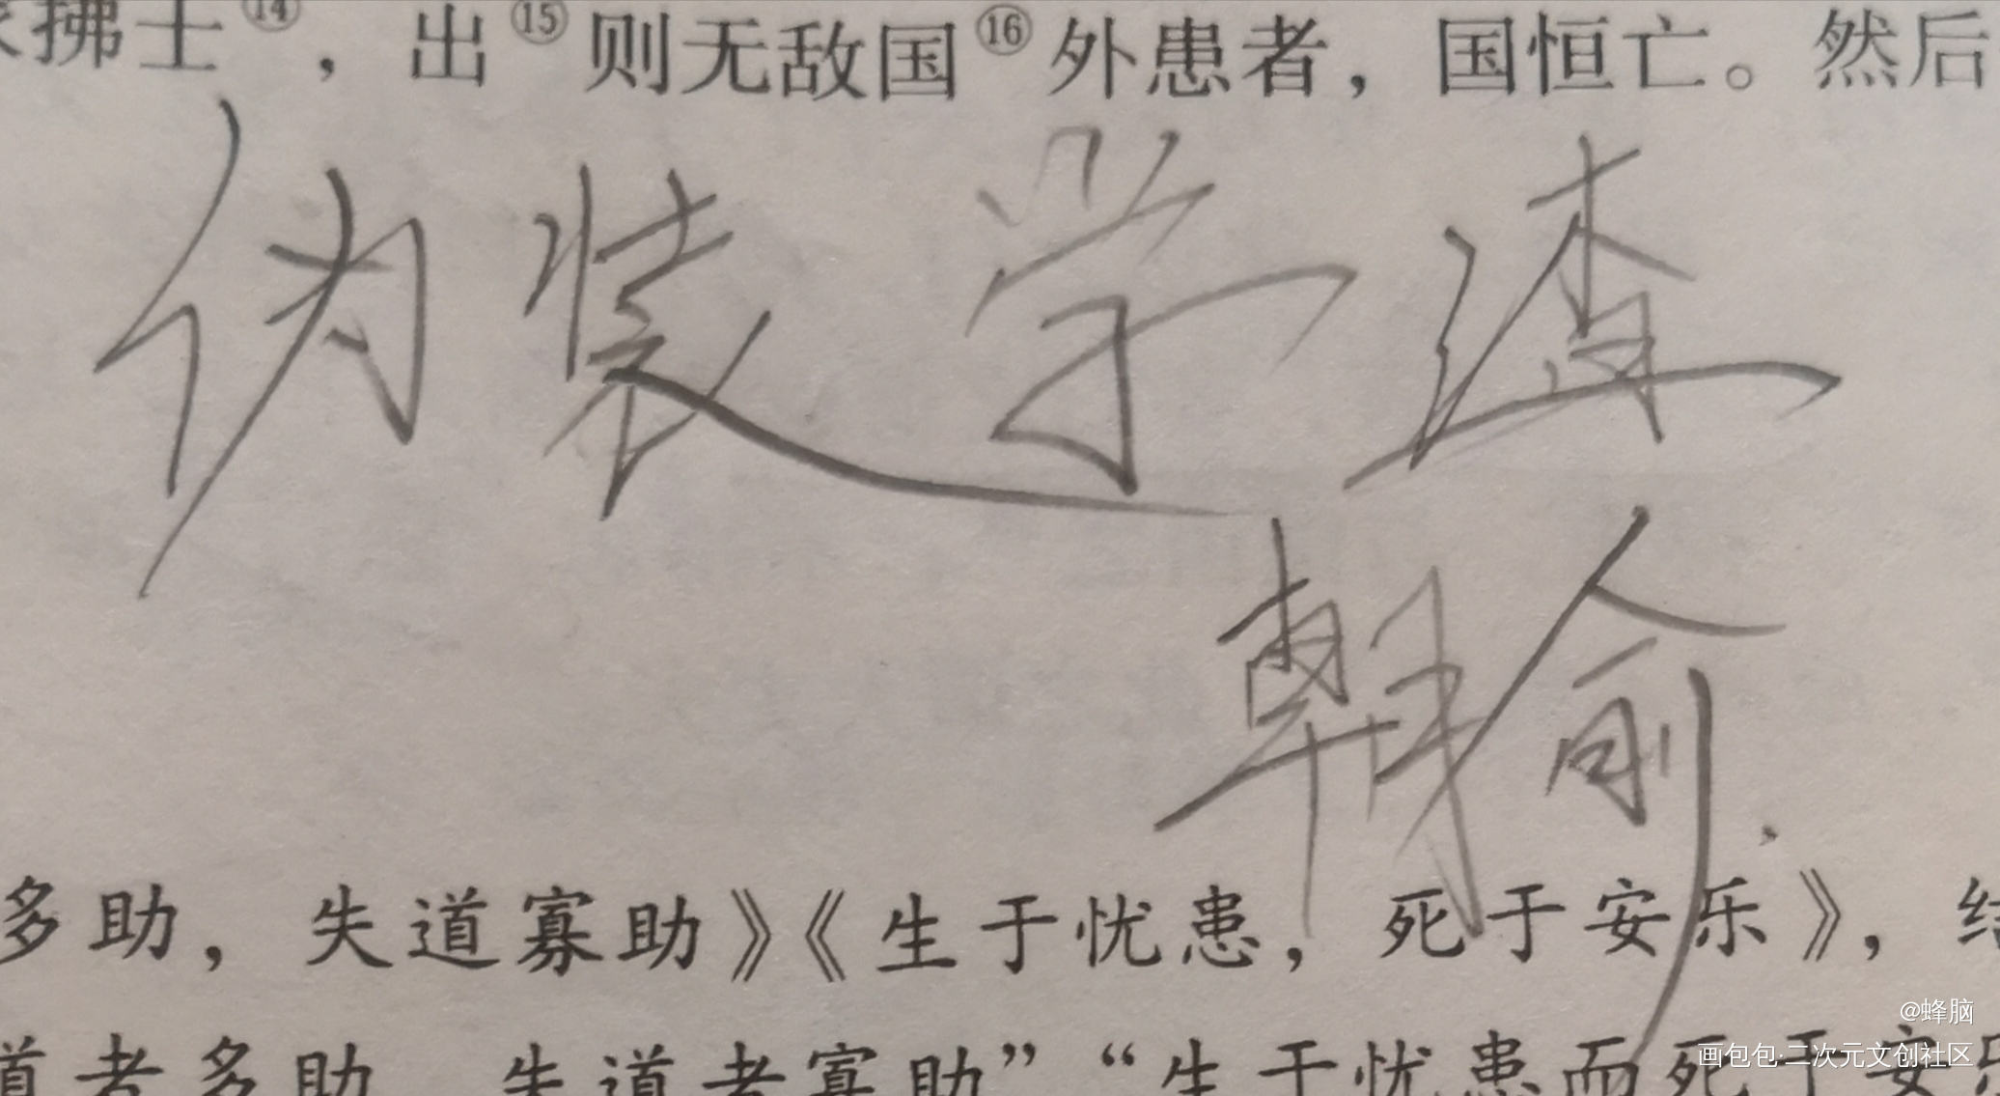 拂士⑭，出⑮则无敌国⑯外患者，国恒亡。然后
伪装学渣
韩俞
多助，失道寡助》《生于忧患，死于安乐》，结
道者多助，失道者寡助”“生于忧患而死于安乐
@蜂脑
画包包·二次元文创社区